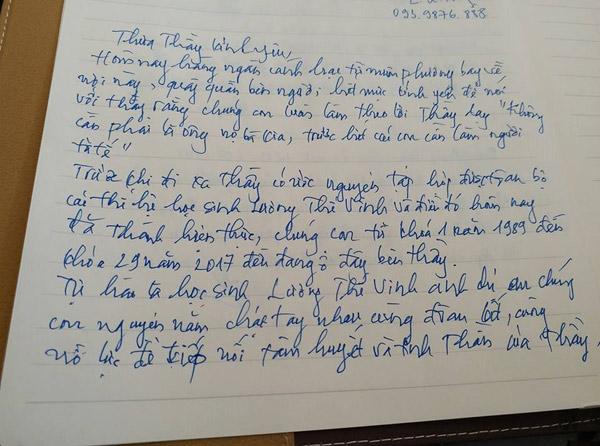 093.9876.888
Thưa Thầy kính yêu,
Hôm nay hàng ngàn cánh hoa từ muôn phương bay về
nơi này, quây quần bên người hết mực kính yêu để nói
với thầy rằng chúng con luôn làm theo lời Thầy dạy "không
cần phải là ông nọ bà kia, trước hết các con cần làm người
tử tế"
Trước khi đi xa Thầy có ước nguyện tập hợp được toàn bộ
các thế hệ học sinh Lương Thế Vinh và điều đó hôm nay
đã thành hiện thực, chúng con từ khoá 1 năm 1989 đến
khóa 29 năm 2017 đều đang ở đây bên thầy.
Tự hào là học sinh Lương Thế Vinh anh chị em chúng
con nguyện nắm chặt tay nhau cùng đoàn kết, cùng
nỗ lực để tiếp nối tâm huyết và tinh thần của thầy.